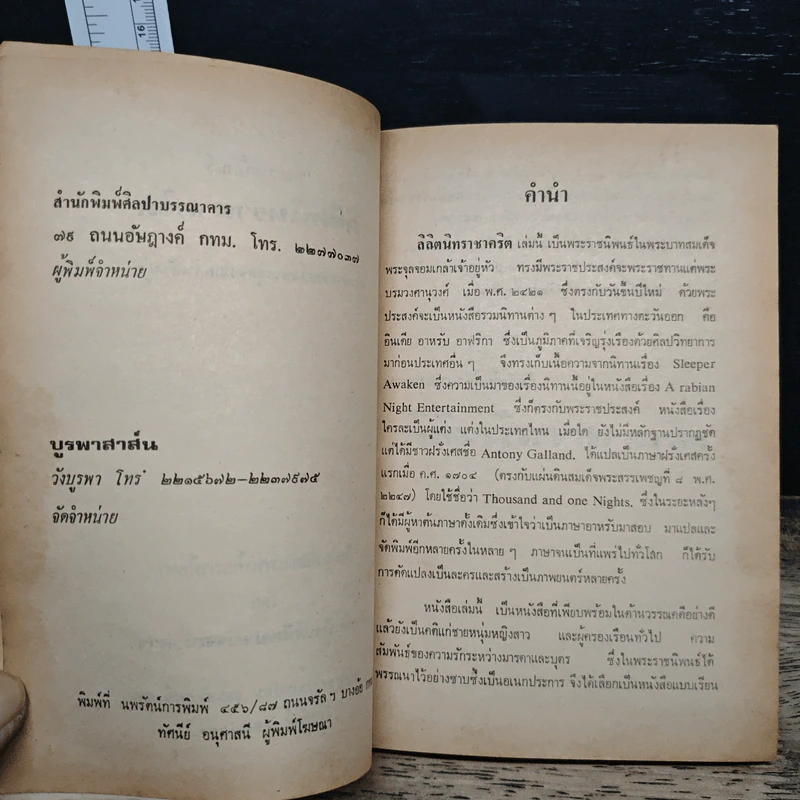 16
สำนักพิมพ์ศิลปาบรรณาคาร
๗๙ ถนนอัษฎางค์ กทม. โทร. ๒๒๗๗๐๓๗
ผู้พิมพ์จำหน่าย
บูรพาสาส์น
วังบูรพา โทร ๒๒๑๕๖๗๒-๒๒๓๗๙๗๕
จัดจำหน่าย
พิมพ์ที่ นพรัตน์การพิมพ์ ๔๕๖/๘๗ ถนนจรัลฯ บางอ้อ
ทัศนีย์ อนุศาสนี ผู้พิมพ์โฆษณา
คำนำ
ลิลิตนิทราชาคริต เล่มนี้ เป็นพระราชนิพนธ์ในพระบาทสมเด็จ
พระจุลจอมเกล้าเจ้าอยู่หัว ทรงมีพระราชประสงค์จะพระราชทานแด่พระ
บรมวงศานุวงศ์ เมื่อ พ.ศ. ๒๔๒๑ ซึ่งตรงกับวันขึ้นปีใหม่ ด้วยพระ
ประสงค์จะเป็นหนังสือรวมนิทานต่าง ๆ ในประเทศทางตะวันออก คือ
อินเดีย อาหรับ อาฟริกา ซึ่งเป็นภูมิภาคที่เจริญรุ่งเรืองด้วยศิลปวิทยาการ
มาก่อนประเทศอื่น ๆ จึงทรงเก็บเนื้อความจากนิทานเรื่อง Sleeper
Awaken ซึ่งความเป็นมาของเรื่องนิทานนี้อยู่ในหนังสือเรื่อง A rabian
Night Entertainment ซึ่งก็ตรงกับพระราชประสงค์ หนังสือเรื่อง
ใครละเป็นผู้แต่ง แต่งในประเทศไหน เมื่อใด ยังไม่มีหลักฐานปรากฏชัด
แต่ได้มีชาวฝรั่งเศสชื่อ Antony Galland. ได้แปลเป็นภาษาฝรั่งเศสครั้ง
แรกเมื่อ ค.ศ. ๑๗๐๔ (ตรงกับแผ่นดินสมเด็จพระสรรเพชญที่ ๘ พ.ศ.
๒๒๔๗) โดยใช้ชื่อว่า Thousand and one Nights, ซึ่งในระยะหลังๆ
ก็ได้มีผู้หาต้นภาษาดั้งเดิมซึ่งเข้าใจว่าเป็นภาษาอาหรับมาสอบ มาแปลและ
จัดพิมพ์อีกหลายครั้งในหลาย ๆ ภาษาจนเป็นที่แพร่ไปทั่วโลก ก็ได้รับ
การดัดแปลงเป็นละครและสร้างเป็นภาพยนตร์หลายครั้ง
หนังสือเล่มนี้ เป็นหนังสือที่เพียบพร้อมในด้านวรรณคดีอย่างดี
แล้วยังเป็นคติแก่ชายหนุ่มหญิงสาว และผู้ครองเรือนทั่วไป ความ
สัมพันธ์ของความรักระหว่างมารดาและบุตร ซึ่งในพระราชนิพนธ์ได้
พรรณนาไว้อย่างซาบซึ้งเป็นอเนกประการ จึงได้เลือกเป็นหนังสือแบบเรียน